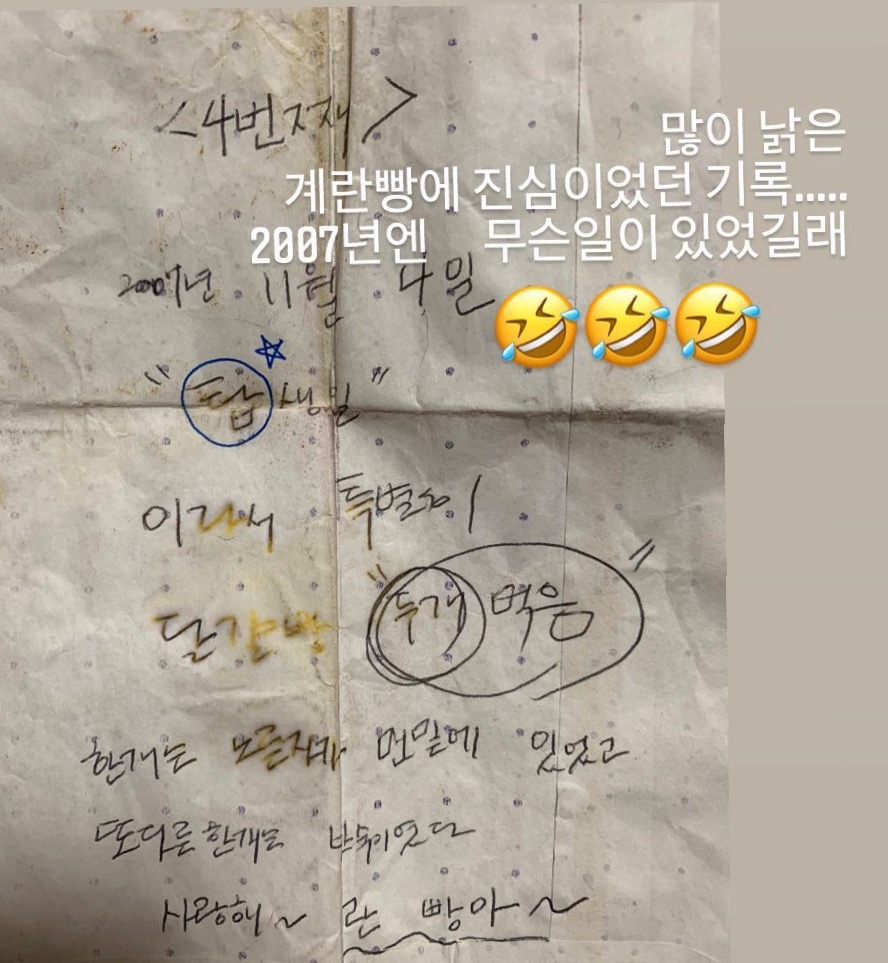 <4번째>
많이 낡은
계란빵에 진심이었던 기록.....
2007년엔 무슨일이 있었길래
2007년 11월 4일
🤣🤣🤣
☆
"탑 생일"
이라서 특별히
달걀빵 "두개 먹음"
한개는 노른자가 맨밑에 있었고
또다른한개는 반숙이었다
사랑해~ 란 빵아~